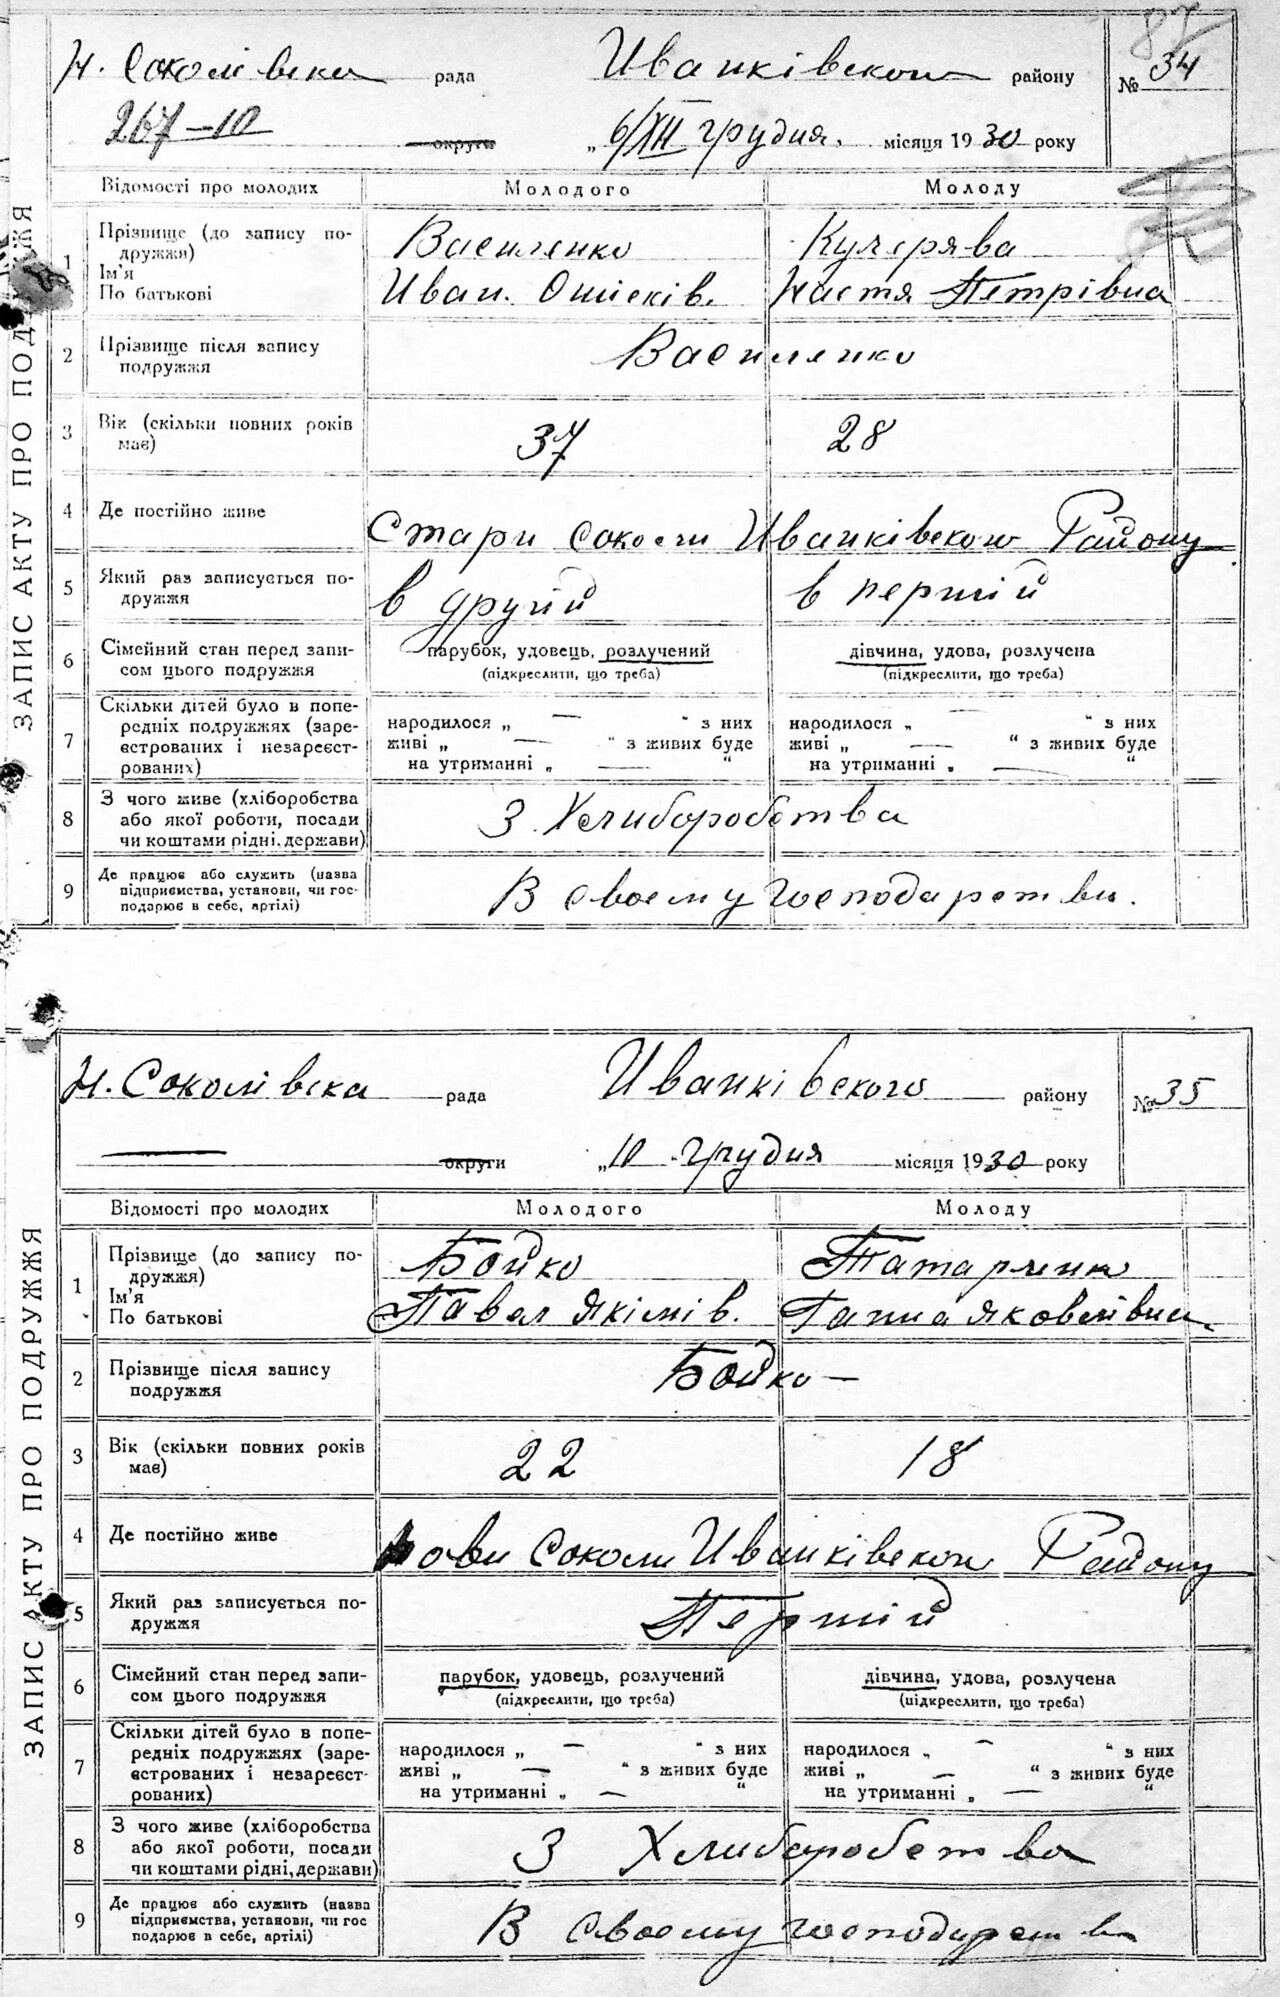 87
Н. Соколівска рада Иванківского району № 34
267-10 округи „ 6/XII грудня. місяця 1930 року
Відомості про молодих Молодого Молоду
ЗАПИС АКТУ ПРО ПОДРУЖЖЯ
1 Прізвище (до запису по- Василенко Кучерява
дружжя)
Ім'я
По батькові Иван. Оникіїв. Настя Петрівна
2 Прізвище після запису Василенко
подружжя
3 Вік (скільки повних років 37 28
має)
4 Де постійно живе Стари Соколи Иванківского Району
5 Який раз записується по- в другій в першій
дружжя
6 Сімейний стан перед запи- парубок, удовець, розлучений дівчина, удова, розлучена
сом цього подружжя (підкреслити, що треба) (підкреслити, що треба)
Скільки дітей було в попе-
7 редніх подружжях (заре- народилося „ — “ з них народилося „ — “ з них
єстрованих і незареєст- живі „ — “ з живих буде живі „ — “ з живих буде
рованих) на утриманні „ — “ на утриманні „ — “
З чого живе (хліборобства
8 або якої роботи, посади З Хлиборобства
чи коштами рідні, держави)
Де працює або служить (назва
9 підприємства, установи, чи гос- В своему господарстви.
подарює в себе, артілі)
Н. Соколівска рада Иванківского району № 35
— округи „ 10 “ грудня місяця 1930 року
Відомості про молодих Молодого Молоду
ЗАПИС АКТУ ПРО ПОДРУЖЖЯ
1 Прізвище (до запису по- Бойко Татарченко
дружжя)
Ім'я
По батькові Павел Якімів. Ганна Яковлівна
2 Прізвище після запису Бойко —
подружжя
3 Вік (скільки повних років 22 18
має)
4 Де постійно живе Нови Соколи Иванківского Району
5 Який раз записується по- Першій
дружжя
6 Сімейний стан перед запи- парубок, удовець, розлучений дівчина, удова, розлучена
сом цього подружжя (підкреслити, що треба) (підкреслити, що треба)
Скільки дітей було в попе-
7 редніх подружжях (заре- народилося „ — “ з них народилося „ — “ з них
єстрованих і незареєст- живі „ — “ з живих буде живі „ — “ з живих буде
рованих) на утриманні „ — “ на утриманні „ — “
З чого живе (хліборобства
8 або якої роботи, посади З Хлиборобства
чи коштами рідні, держави)
Де працює або служить (назва
9 підприємства, установи, чи гос В своему господарств
подарює в себе, артілі)